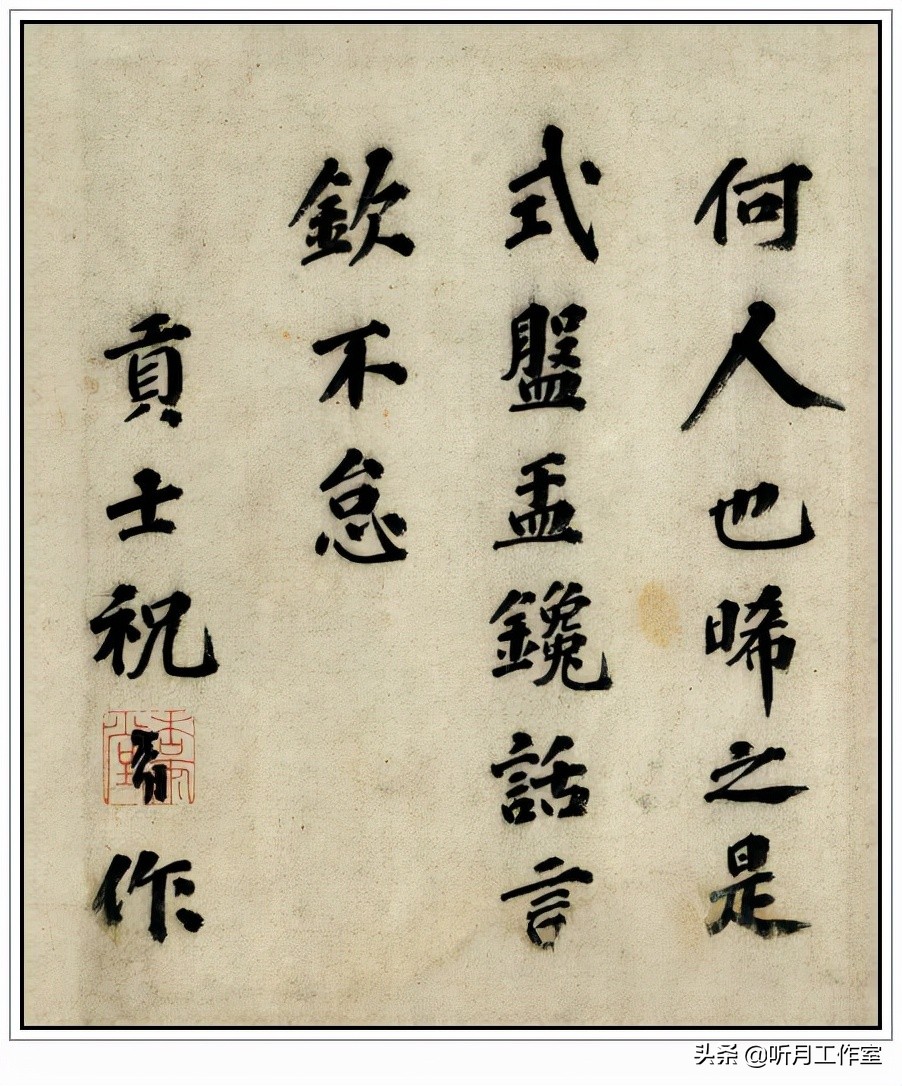 何人也晞之是
式盤盂鑱話言
欽不怠
貢士祝作
头条 @听月工作室